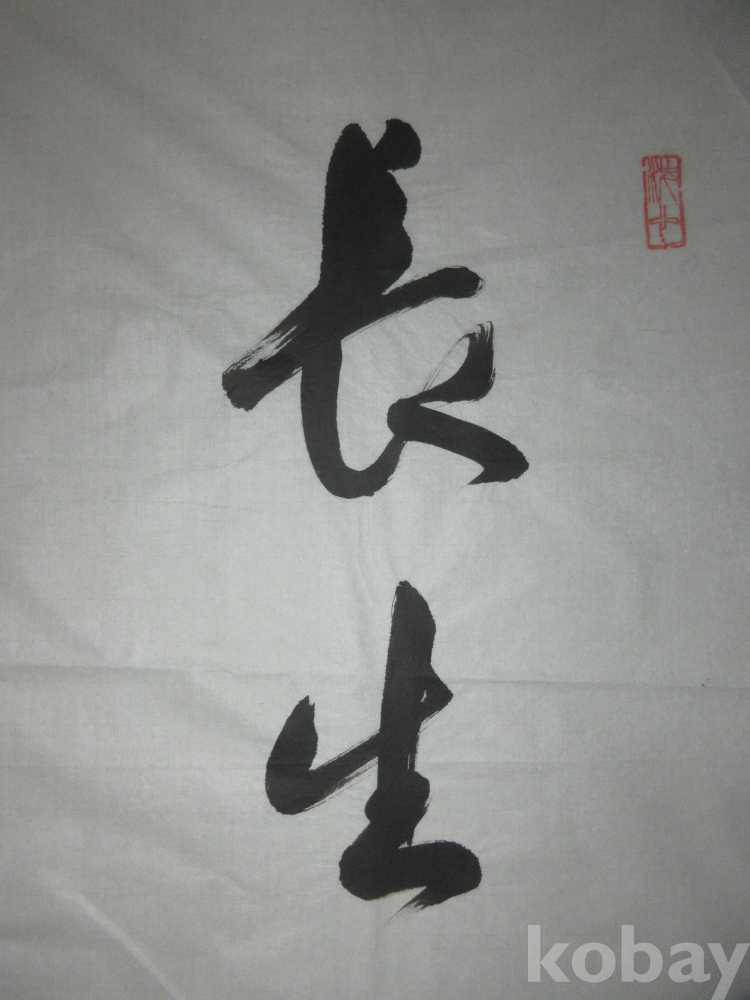 長生
kobay